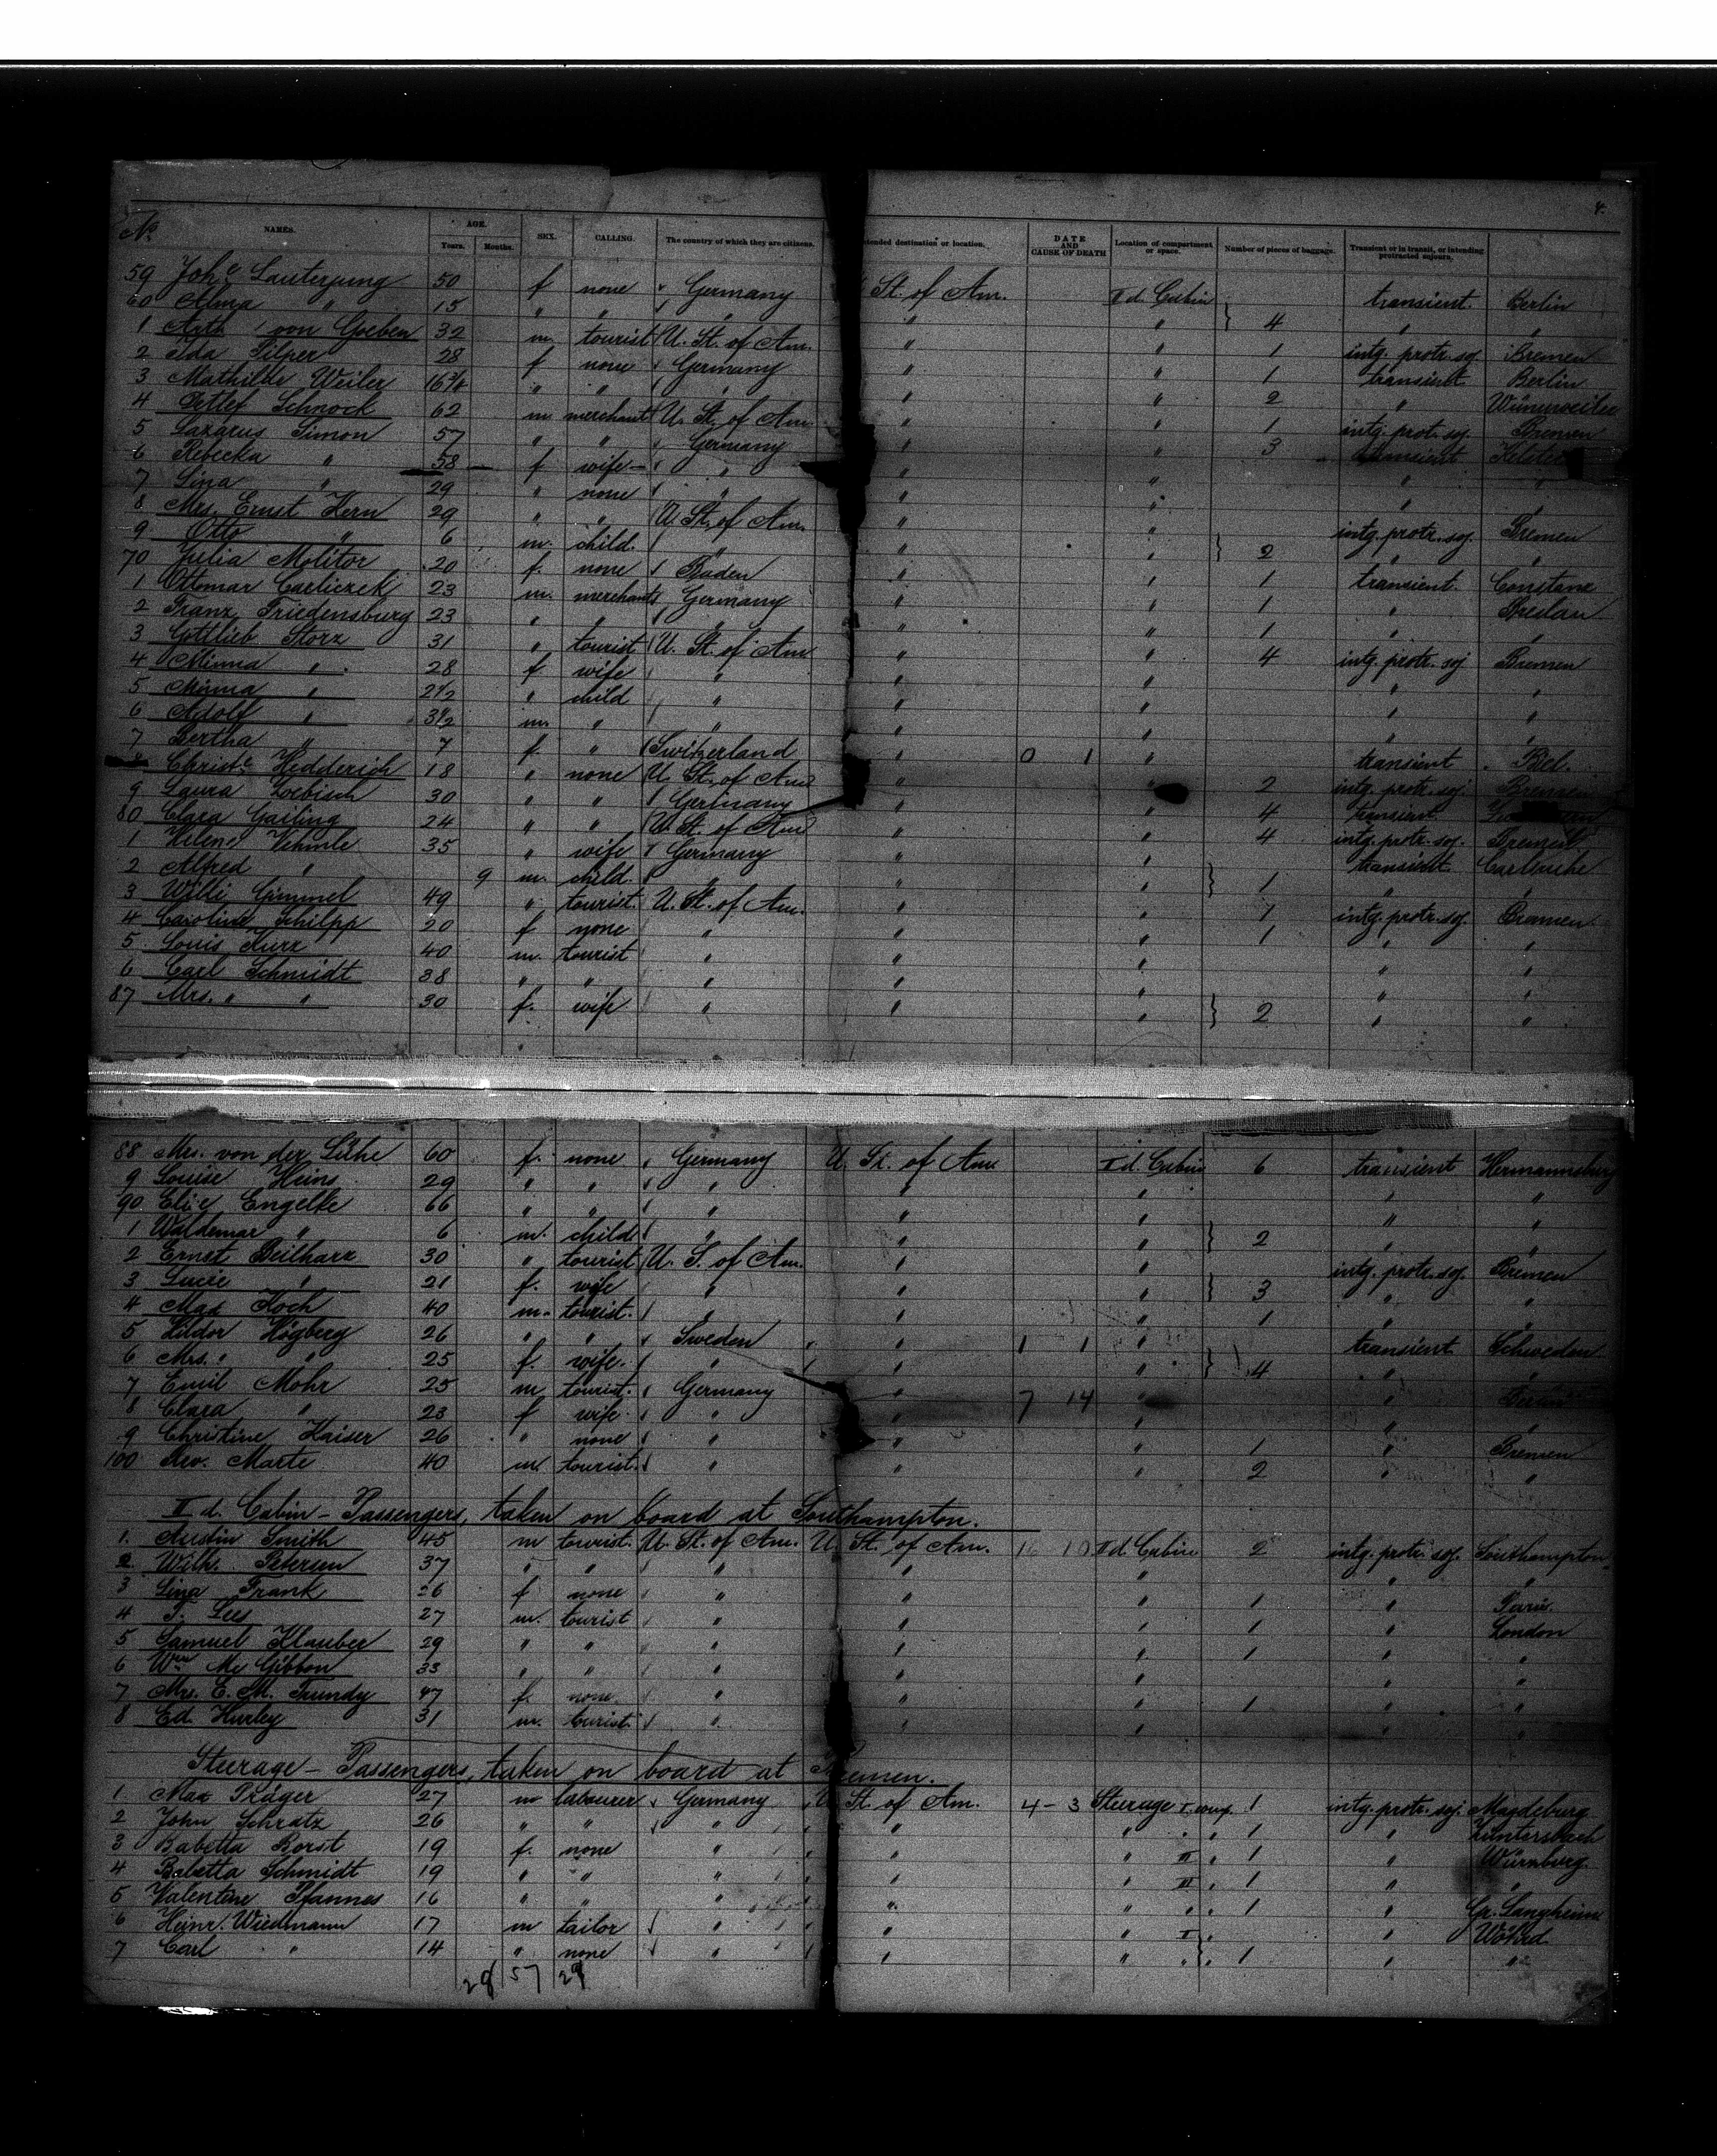 4.
No. NAMES. AGE. Years. Months. SEX. CALLING. The country of which they are citizens. tended destination or location. DATE AND CAUSE OF DEATH Location of compartment or space. Number of pieces of baggage. Transient or in transit, or intending protracted sojourn.
59 Joh.e Lauterjung 50 f none Germany St. of Am. II d. Cabin transient Berlin
60 Alma " 15 " " " " " } 4 " "
1 Arth. von Goeben 32 m. tourist U. St. of Am. " " 1 intg. protr. soj. Bremen
2 Ida Pilper 28 f none Germany " " 1 transient Berlin
3 Mathilde Weiler 16 3/4 " " " " " 2 "
4 Detlef Schnock 62 m merchant U. St. of Am. " " 1 intg. prot. soj. Bremen
5 Lazarus Simon 57 " " Germany " " 3 transient
6 Rebecka " 58 f wife " " " " "
7 Lina " 29 " none " " " " "
8 Mrs. Ernst Kern 29 " " U. St. of Am. " " intg. protr. soj. Bremen
9 Otto " 6 m. child. " " " } 2 " "
70 Julia Molitor 20 f. none Baden " " 1 transient. Constanz
1 Ottomar Carliczek 23 m. merchant Germany " " 1 " Breslau
2 Franz Friedensburg 23 " " " " " 1 " "
3 Gottlieb Storz 31 " tourist U. St. of Am " " 4 intg. protr. soj Bremen
4 Minna " 28 f wife " " " " "
5 Minna " 2 1/2 " child " " " " "
6 Adolf " 3 1/2 m. " " " " " "
7 Bertha " 7 f. " Switzerland " 0 1 " transient Biel.
8 Christ.e Hedderich 18 " none U. St. of Am " " 2 intg. protr. soj. Bremen
9 Laura Loebisch 30 " " Germany " " 4 transient
80 Clara Gailing 24 " " U. St. of Am " " 4 intg. protr. soj. Bremen
1 Helene Vehmle 35 " wife Germany " " transient Carlsruhe
2 Alfred " 9 m. child. " " " } 1 " "
3 Willi Gimmel 49 " tourist. U. St. of Am. " " 1 intg. protr. soj. Bremen
4 Caroline Schilpp 20 f none " " " 1 " "
5 Louis Kurz 40 m. tourist " " " " "
6 Carl Schmidt 38 " " " " " " "
87 Mrs. " " 30 f. wife " " " } 2 " "
88 Mrs. von der Lühe 60 f. none Germany U. St. of Am. II d. Cabin 6 transient Hermannsburg
9 Louise Heins 29 " " " " " " "
90 Elise Engelke 66 " " " " " " "
1 Waldemar " 6 m. child " " " } 2 " "
2 Ernst Beilharz 30 " tourist U. S. of Am. " " intg. protr. soj. Bremen
3 Lucie " 21 f. wife " " " } 3 " "
4 Max Koch 40 m. tourist. " " " 1 " "
5 Hildor Högberg 26 " " Sweden " 1 1 " transient Schweden
6 Mrs. " " 25 f. wife. " " " } 4 " "
7 Emil Mohr 25 m tourist. Germany " 7 14 " " Berlin
8 Clara " 23 f wife. " " " " "
9 Christine Kaiser 26 " none " " " 1 " Bremen
100 Rev. Marte 40 m. tourist. " " " 2 " "
II d. Cabin - Passengers, taken on board at Southampton.
1. Austin Smith 45 m tourist. U. St. of Am. U. St. of Am. 16 10 II d. Cabin 2 intg. protr. soj. Southampton
2. Wilh. Petersen 37 " " " " " " "
3 Lina Frank 26 f none " " " 1 " Paris.
4 T. Lees 27 m. tourist " " " 1 " London
5 Samuel Klauber 29 " " " " " 1 " "
6 Wm. Mc Gibbon 33 " " " " " " "
7 Mrs. E. M. Trundy 47 f. none " " " 1 " "
8 Ed. Hurley 31 m. tourist. " " " " "
Steerage - Passengers, taken on board at Bremen.
1. Max Präger 27 m labourer Germany U St. of Am. 4 - 3 Steerage I comp. 1 intg. protr. soj. Magdeburg
2 John Schratz 26 " " " " " " " 1 " Züntersbach
3 Babetta Borst 19 f. none " " " II " 1 " Würnburg.
4 Babetta Schmidt 19 " " " " " III " 1 " "
5 Valentine Pfannes 16 " " " " " " " 1 " Gr. Langheim
6 Heinr. Wiedmann 17 m tailor " " " I " " Wöhrd
7 Carl " 14 " none " " " " " } 1 " "
28 57 29